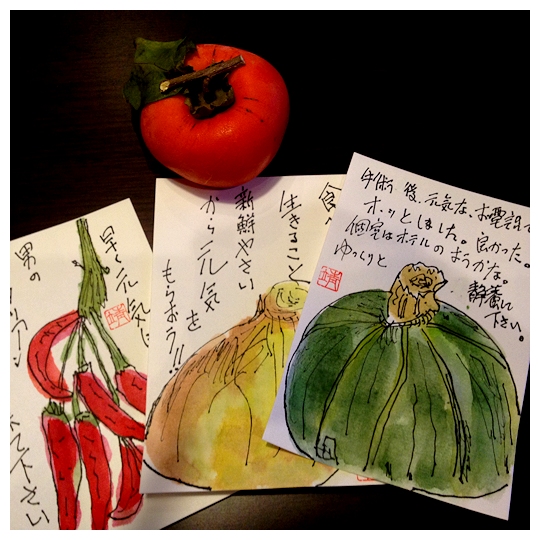 早く元気に
男の
下さい
食
生きること
新鮮やさい
から元気を
もらおう!!
手術後、元気な、お電話で
ホッとしました。良かった。
個室はホテルのようかな。
ゆっくりと
静養して
下さい。